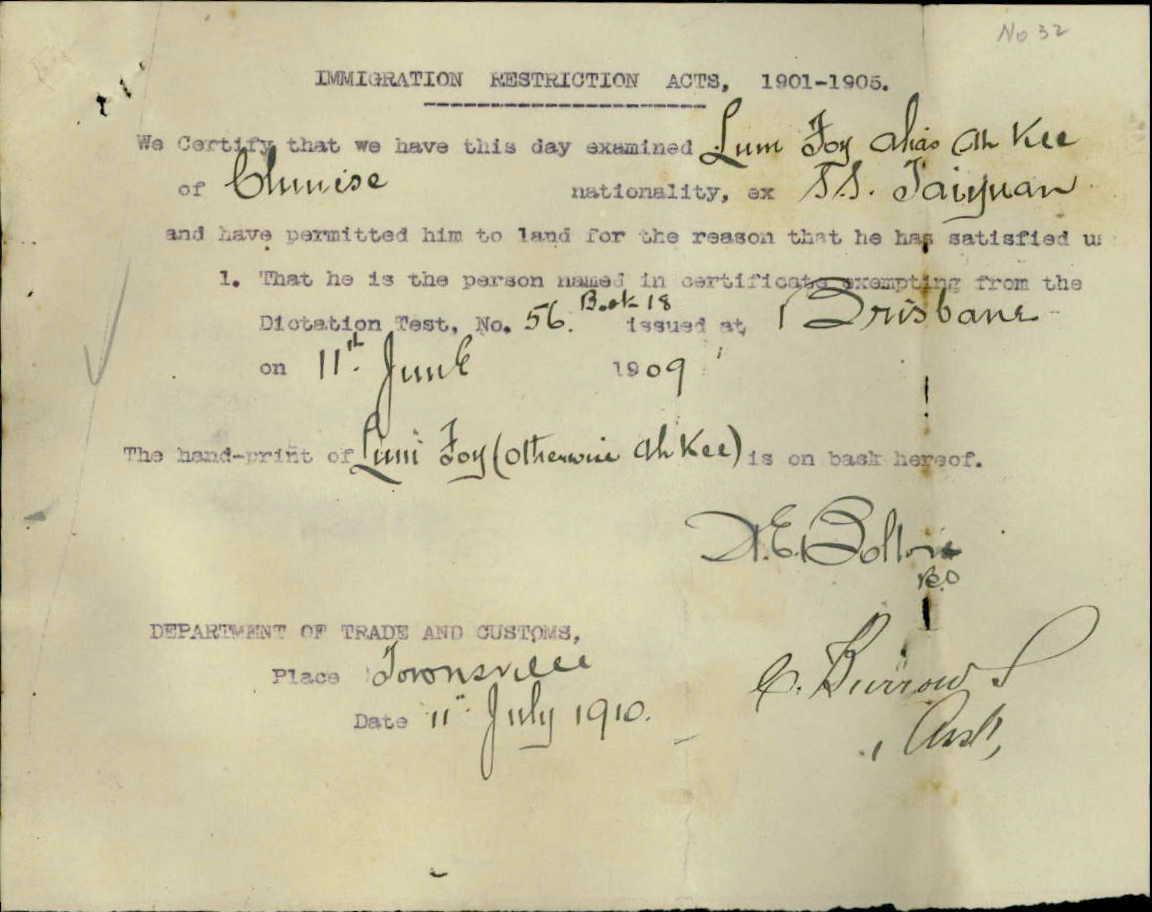 No 32
IMMIGRATION RESTRICTION ACTS, 1901-1905.
We Certify that we have this day examined Lum Foy alias Ah Kee
of Chinise nationality, ex S.S. Taiyuan
and have permitted him to land for the reason that he has satisfied us
1. That he is the person named in certificate exempting from the
Dictation Test, No. 56. Book 18 issued at Brisbane
on 11th June 1909
The hand-print of Lum Foy (otherwise Ah Kee) is on back hereof.
Bolton
DEPARTMENT OF TRADE AND CUSTOMS,
C. Burrows
Place Townsville
Date 11th July 1910.